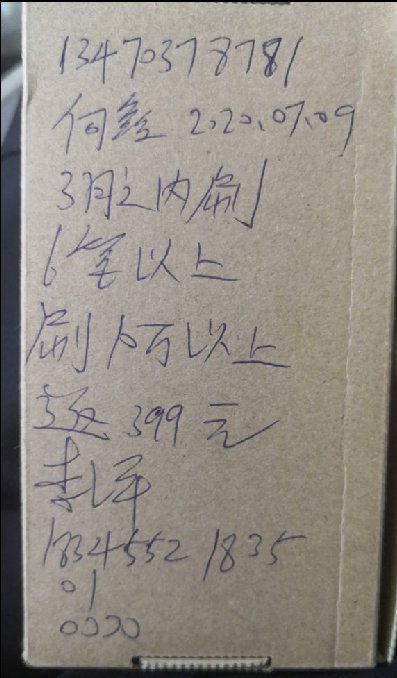 13470378781
何鑫 2020.07.09
3月之内刷
6笔以上
刷6万以上
返399元
18345521835
01
0000